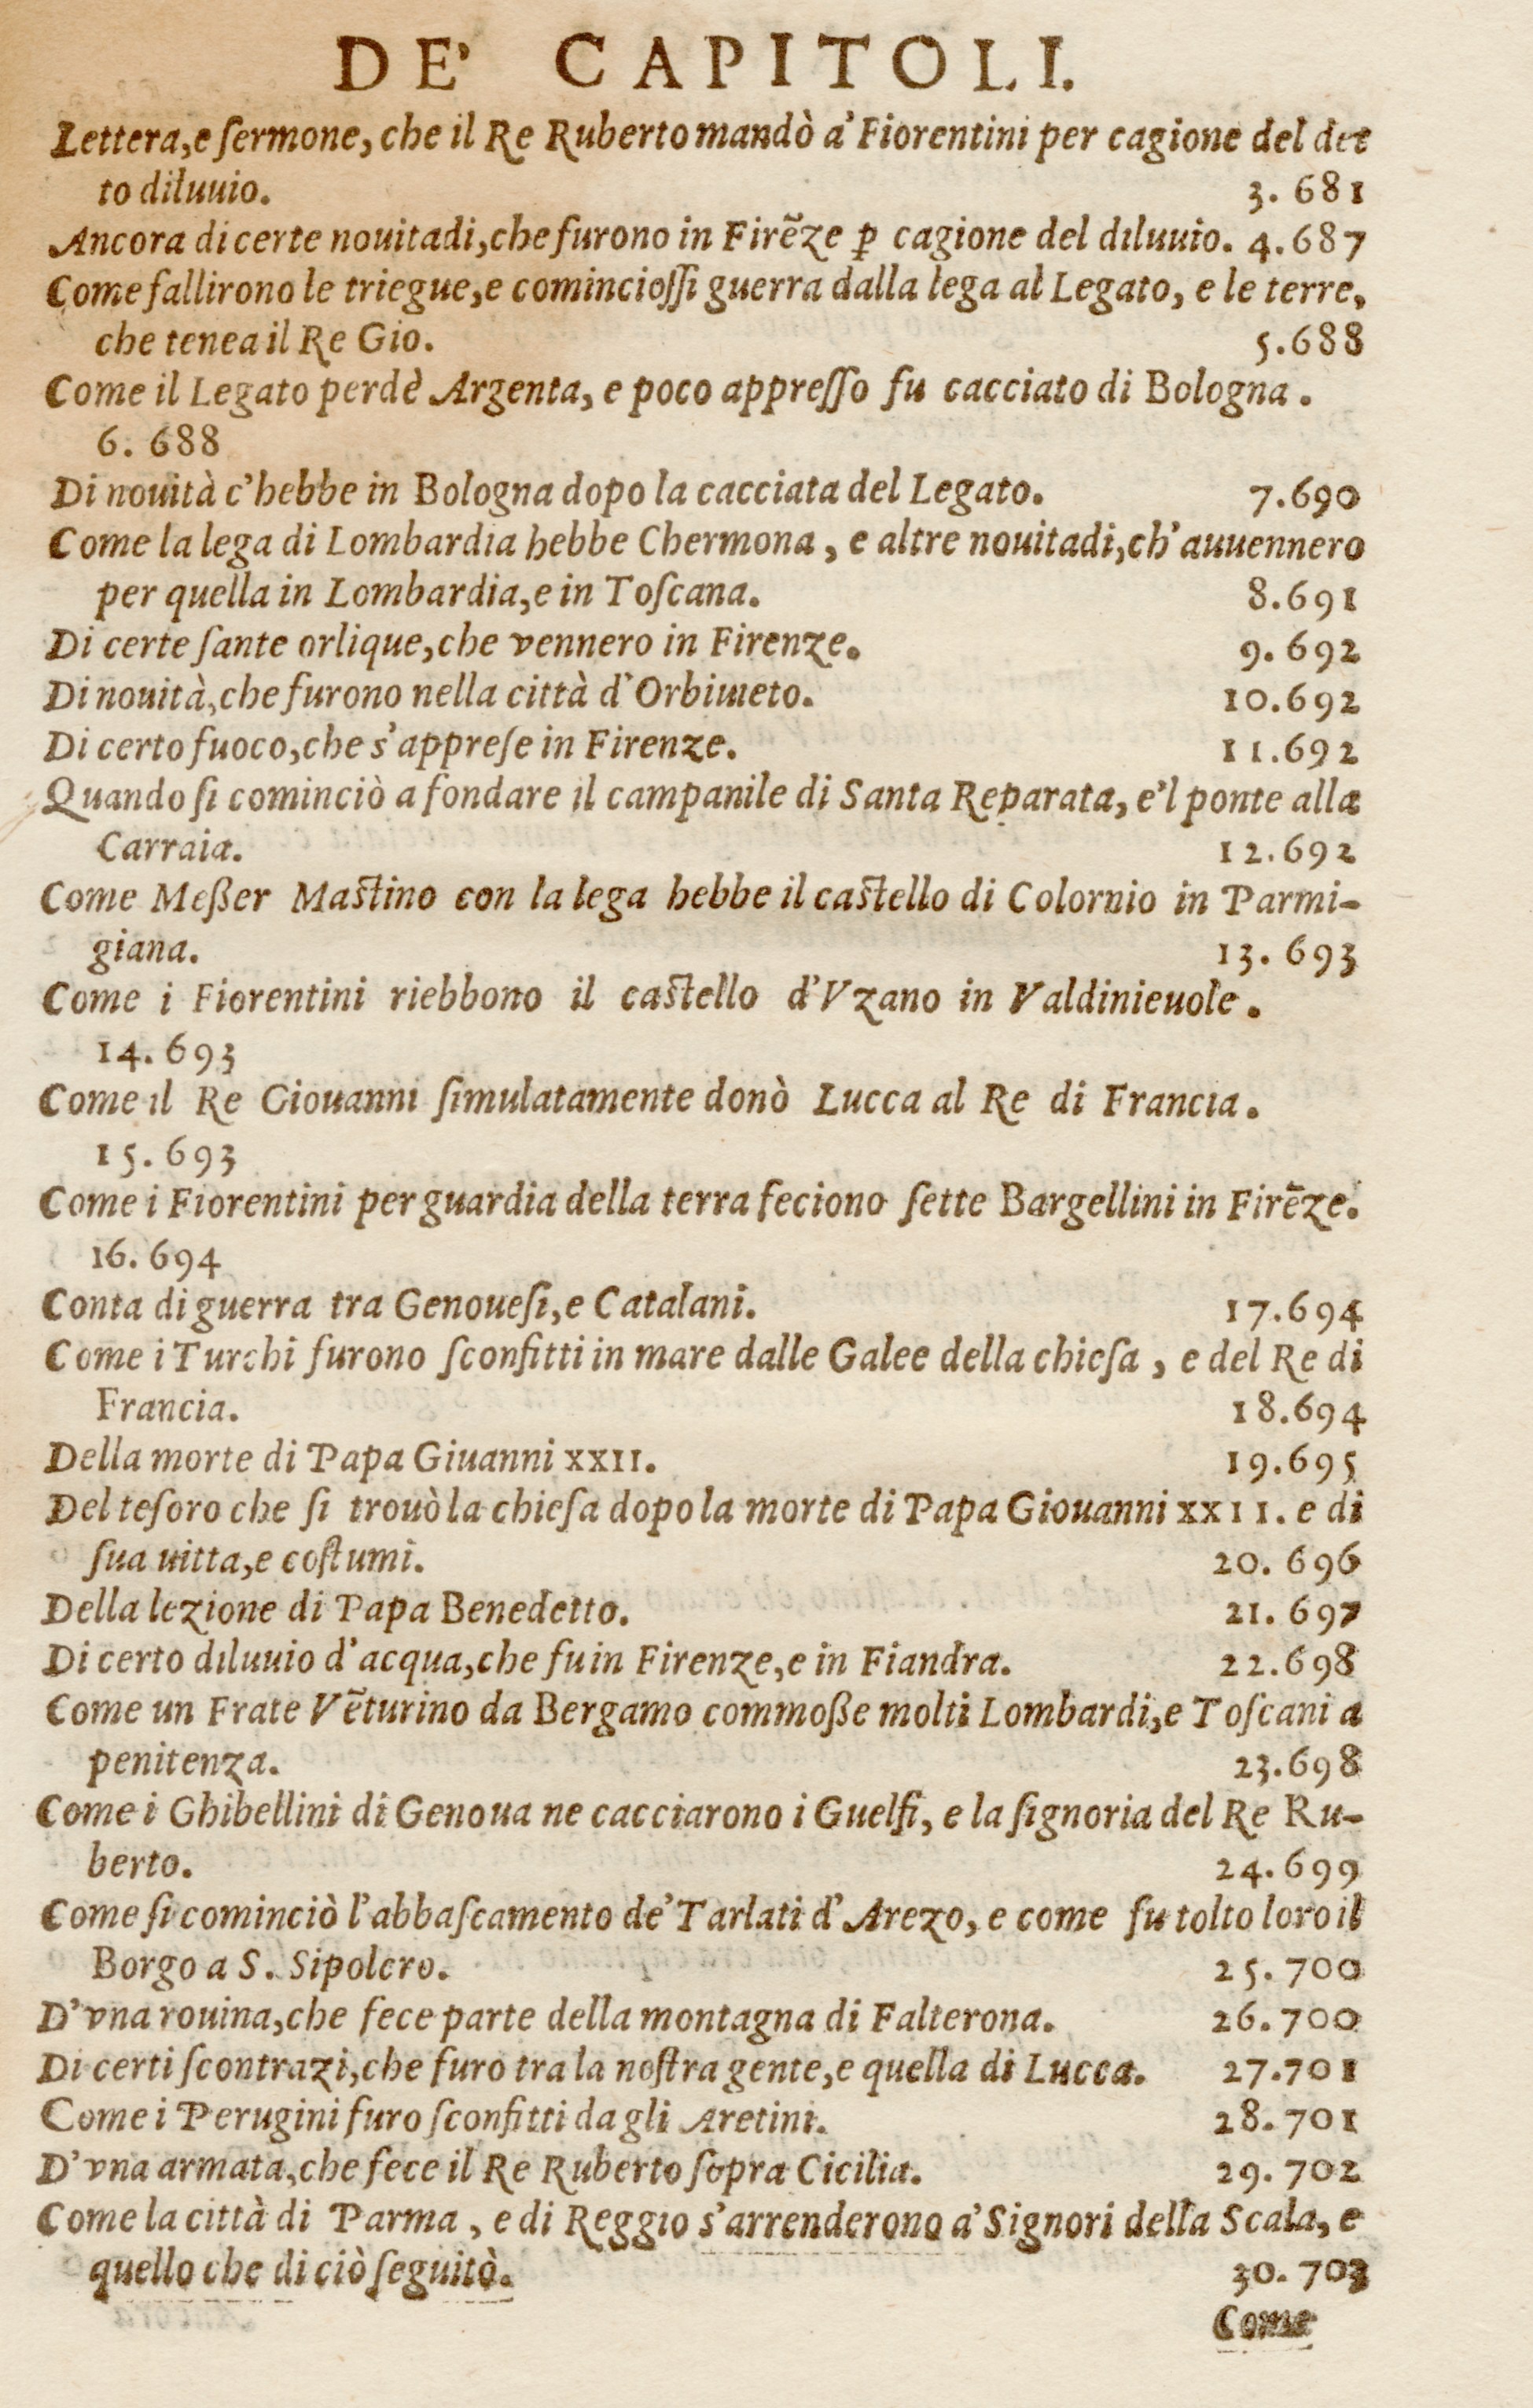 DE' CAPITOLI.
Lettera, e ſermone, che il Re Ruberto mandò a' Fiorentini per cagione del det
to diluuio. 3. 681
Ancora di certe nouitadi, che furono in Firẽze ꝑ cagione del diluuio. 4. 687
Come fallirono le triegue, e comincioſſi guerra dalla lega al Legato, e le terre,
che tenea il Re Gio. 5.688
Come il Legato perdè Argenta, e poco appreſſo fu cacciato di Bologna.
6. 688
Di nouità c'hebbe in Bologna dopo la cacciata del Legato. 7.690
Come la lega di Lombardia hebbe Chermona, e altre nouitadi, ch'auuennero
per quella in Lombardia, e in Toſcana. 8.691
Di certe ſante orlique, che vennero in Firenze. 9. 692
Di nouità, che furono nella città d'Orbiueto. 10.692
Di certo fuoco, che s'appreſe in Firenze. 11.692
Quando ſi cominciò a fondare il campanile di Santa Reparata, e'l ponte alla
Carraia. 12.692
Come Meßer Maſtino con la lega hebbe il caſtello di Colornio in Parmi-
giana. 13. 693
Come i Fiorentini riebbono il caſtello d'Vzano in Valdinieuole.
14. 693
Come il Re Giouanni ſimulatamente donò Lucca al Re di Francia.
15. 693
Come i Fiorentini per guardia della terra feciono ſette Bargellini in Firẽze.
16. 694
Conta di guerra tra Genoueſi, e Catalani. 17.694
Come i Turchi furono ſconfitti in mare dalle Galee della chieſa, e del Re di
Francia. 18.694
Della morte di Papa Giuanni XXII. 19.695
Del teſoro che ſi trouò la chieſa dopo la morte di Papa Giouanni XXII. e di
ſua uitta, e coſtumi. 20. 696
Della lezione di Papa Benedetto. 21. 697
Di certo diluuio d'acqua, che fu in Firenze, e in Fiandra. 22.698
Come un Frate Vẽturino da Bergamo commoße molti Lombardi, e Toſcani a
penitenza. 23.698
Come i Ghibellini di Genoua ne cacciarono i Guelfi, e la ſignoria del Re Ru-
berto. 24.699
Come ſi cominciò l'abbaſcamento de' Tarlati d'Arezo, e come fu tolto loro il
Borgo a S. Sipolcro. 25. 700
D'vna rouina, che fece parte della montagna di Falterona. 26.700
Di certi ſcontrazi, che furo tra la noſtra gente, e quella di Lucca. 27.701
Come i Perugini furo ſconfitti dagli Aretini. 28. 701
D'vna armata, che fece il Re Ruberto ſopra Cicilia. 29. 702
Come la città di Parma, e di Reggio s'arrenderono a' Signori della Scala, e
quello che di ciò ſeguitò. 30. 703
Come